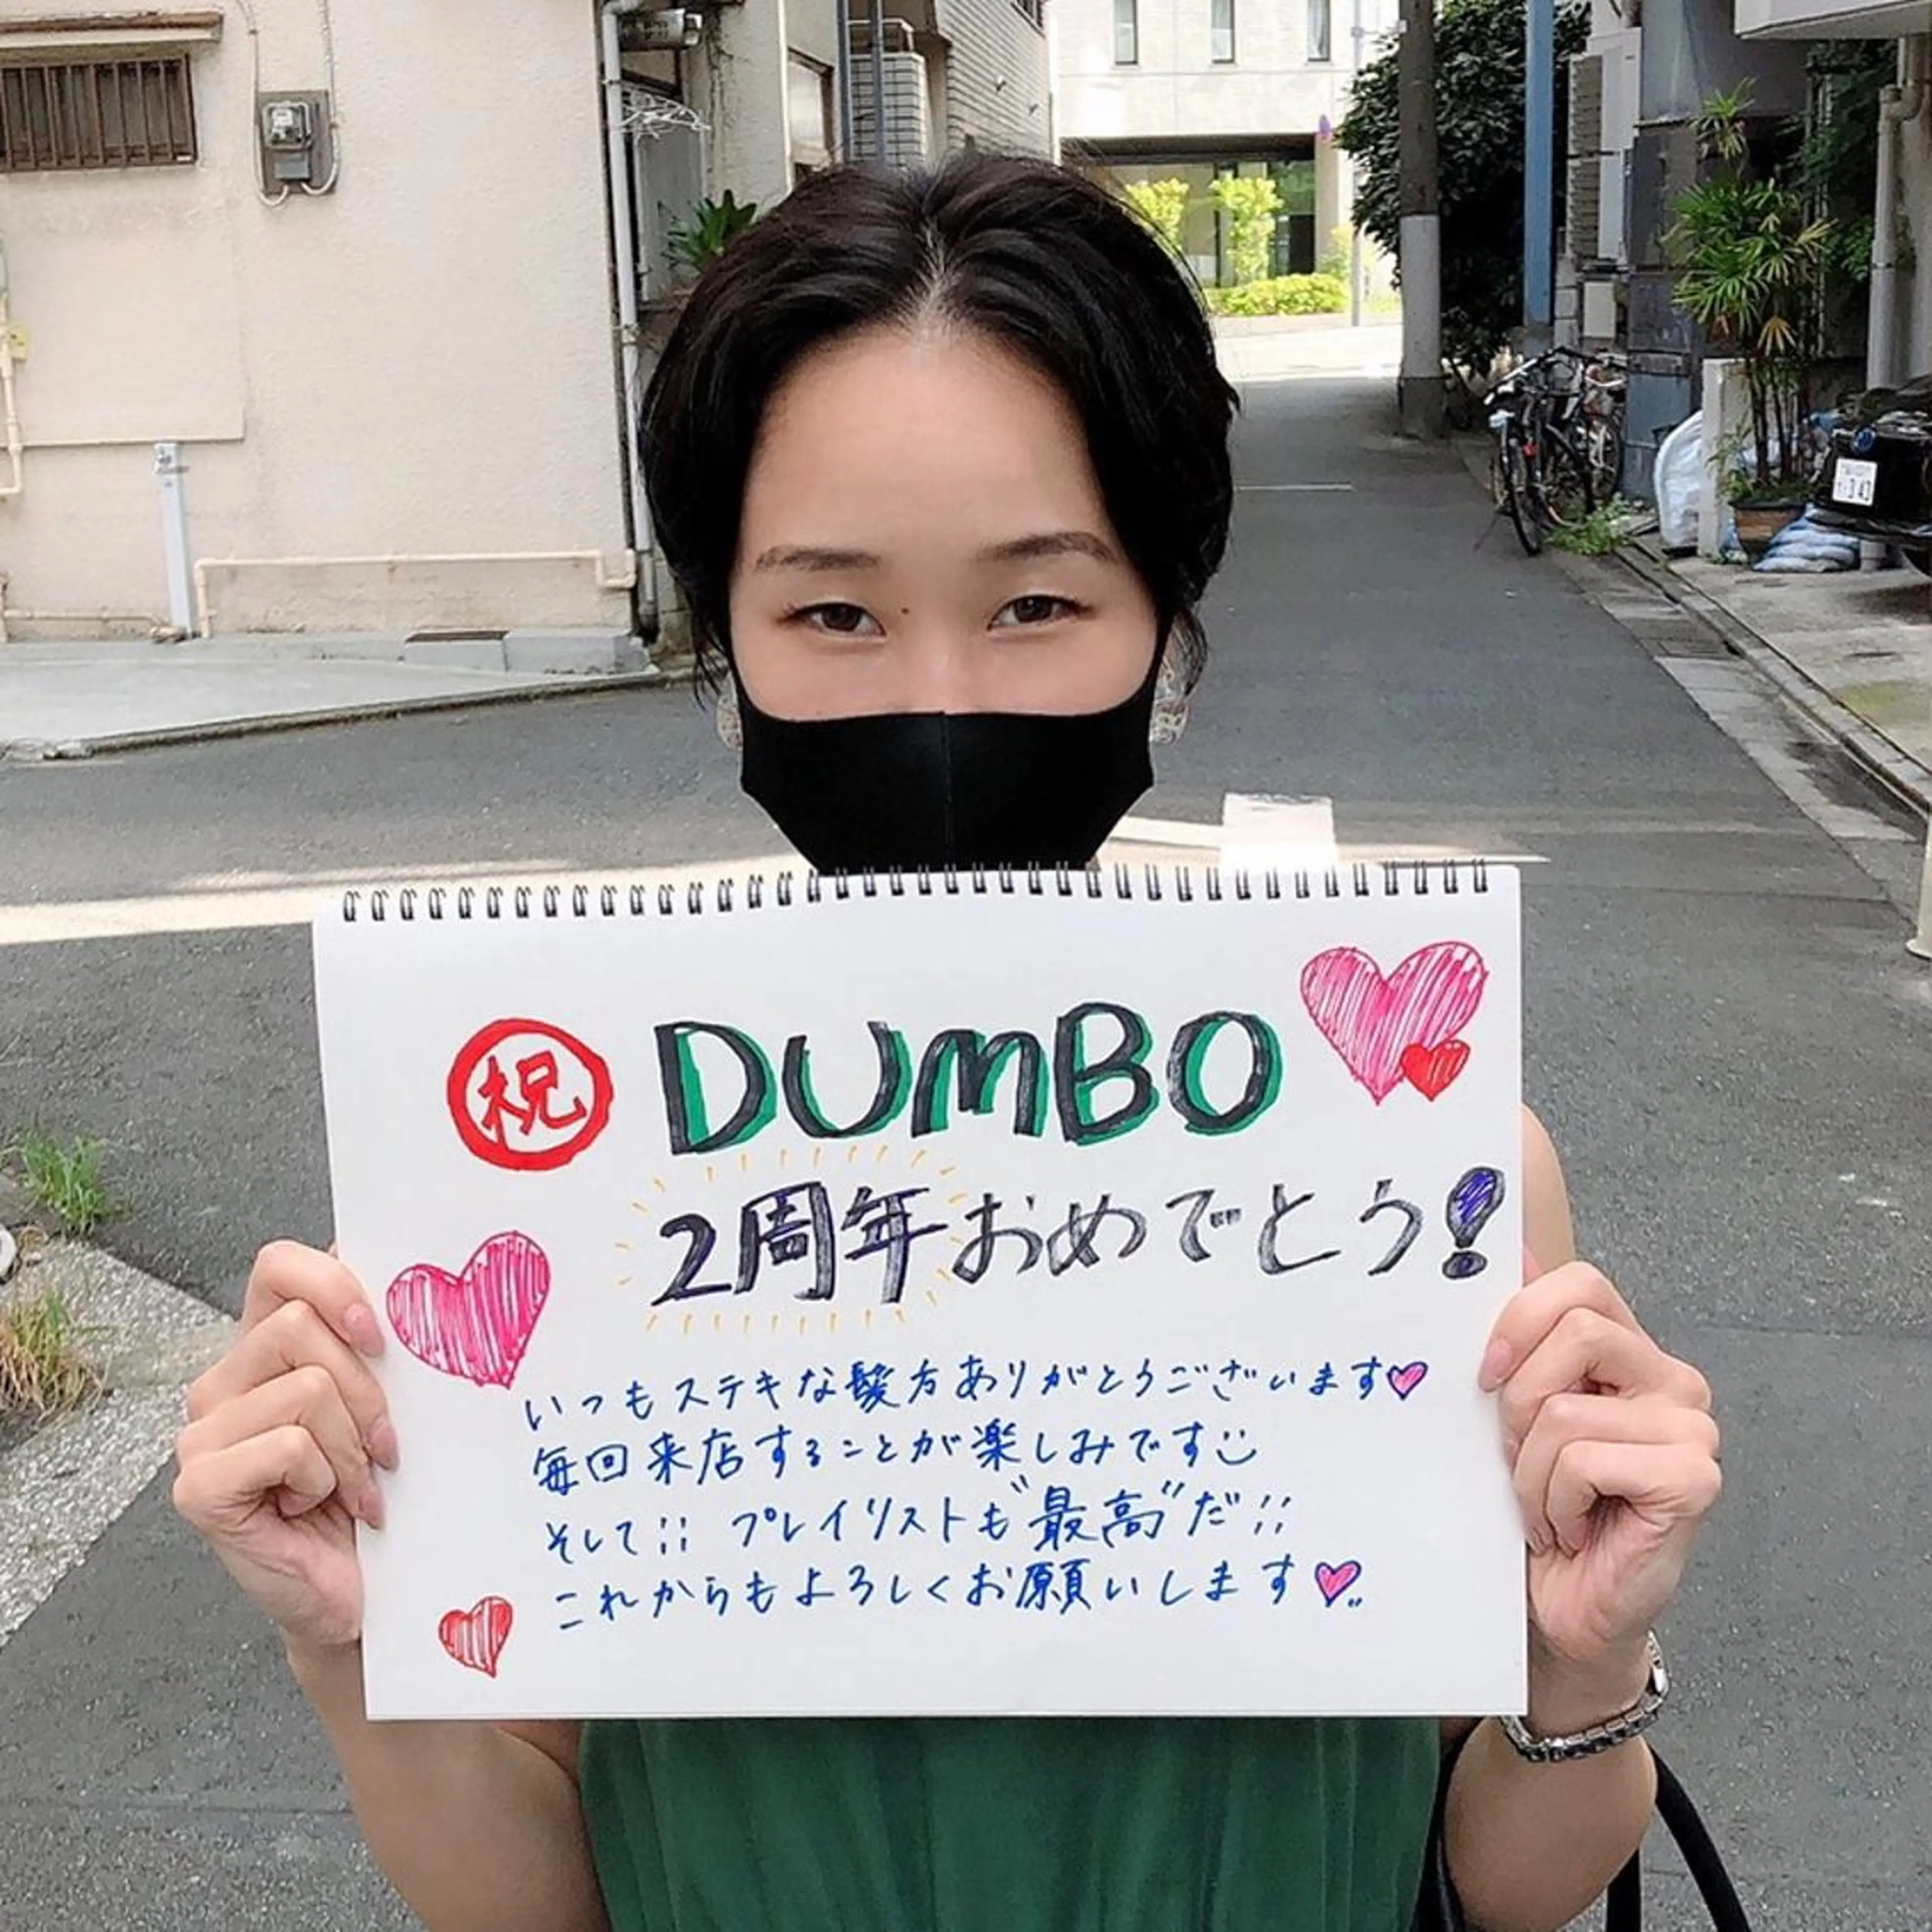 祝 DUMBO
2周年おめでとう!
いつもステキな髪方ありがとうございます♡
毎回来店することが楽しみです
そして!! プレイリストも"最高"だ!!
これからもよろしくお願いします♡
343